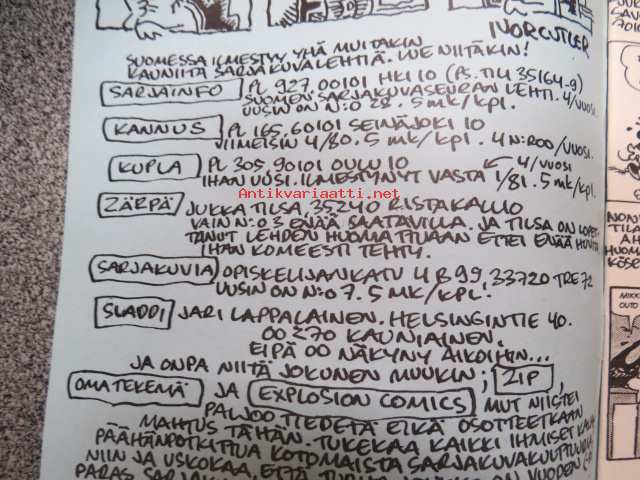 IVOR CUTLER
SUOMESSA ILMESTYY YHÄ MUITAKIN
KAUNIITA SARJAKUVALEHTIÄ. LUE NIITÄKIN!
SARJAINFO PL 927, 00101 HKI 10 (PS. TILI 35164-9)
SUOMEN SARJAKUVASEURAN LEHTI. 4/VUOSI.
UUSIN ON N:O 28. 5 MK/KPL.
KANNUS PL 165, 60101 SEINÄJOKI 10
VIIMEISIN 4/80. 5 MK/KPL. 4 N:ROO/VUOSI.
KUPLA PL 305, 90101 OULU 10 4/VUOSI
IHAN UUSI. ILMESTYNYT VASTA 1/81. 5 MK/KPL.
Antikvariaatti.net
ZÄRPÄ JUKKA TILSA, 35240 RISTAKALLIO
VAIN N:O 3 ENÄÄ SAATAVILLA. JA TILSA ON LOPET-
TANUT LEHDEN HUOMATTUAAN ETTEI ENÄÄ HUVITA
IHAN KOMEESTI TEHTY.
SARJAKUVIA OPISKELIJANKATU 4 B 99, 33720 TRE 72
UUSIN ON N:O 7. 5 MK/KPL.
SLADDI JARI LAPPALAINEN. HELSINGINTIE 40.
00270 KAUNIAINEN.
EIPÄ OO NÄKYNY AIKOIHIN...
JA ONPA NIITÄ JOKUNEN MUUKIN; ZIP,
OMATEKEMÄ JA EXPLOSION COMICS, MUT NIISTEI
PALJOO TIEDETÄ EIKÄ OSOTTEETKAAN
MAHTUS TÄHÄN. TUKEKAA KAIKKI IHMISET
PÄÄHÄNPOTKITTUA KOTOMAISTA SARJAKUVAKULTTUURIA
NIIN JA USKOKAA, ETTÄ ON VUODEN
PARAS